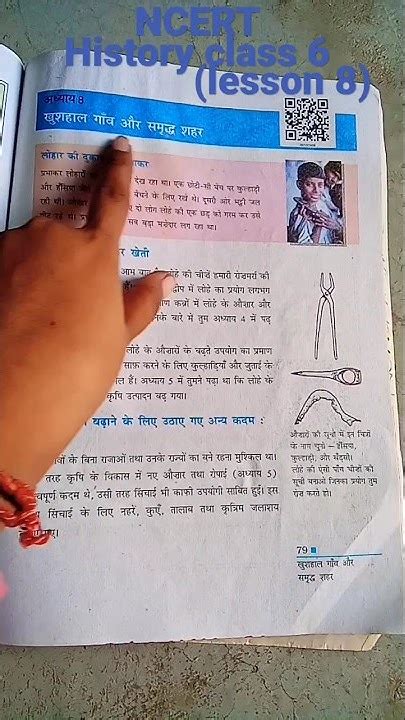 NCERT
History class 6
(lesson 8)
अध्याय 8
खुशहाल गाँव और समृद्ध शहर
लोहार की
प्रभाकर लोहारों देख रहा था। एक छोटी-सी बेंच पर कुल्हाड़ी
और हँसिया बेचने के लिए रखे थे। दूसरी ओर भट्टी जल
रही थी। दो लोग लोहे की एक छड़ को गरम कर उसे
बड़ा मज़ेदार लग रहा था।
र खेती
आम लोहे की चीज़ें हमारी रोज़मर्रा की
द्वीप में लोहे का प्रयोग लगभग
कब्रों में लोहे के औज़ार और
के बारे में तुम अध्याय 4 में पढ़
लोहे के औज़ारों के बढ़ते उपयोग का प्रमाण
साफ़ करने के लिए कुल्हाड़ियाँ और जुताई के
हैं। अध्याय 5 में तुमने पढ़ा था कि लोहे के
कृषि उत्पादन बढ़ गया।
बढ़ाने के लिए उठाए गए अन्य कदम :
के बिना राजाओं तथा उनके राज्यों का बने रहना मुश्किल था।
तरह कृषि के विकास में नए औज़ार तथा रोपाई (अध्याय 5)
कदम थे, उसी तरह सिंचाई भी काफी उपयोगी साबित हुई। इस
सिंचाई के लिए नहरें, कुएँ, तालाब तथा कृत्रिम जलाशय
औज़ारों की सूची में इन चित्रों
के नाम चुनो – हँसिया,
कुल्हाड़ी, और सँड़सी।
लोहे की ऐसी पाँच चीज़ों की
सूची बनाओ जिनका प्रयोग तुम
रोज़ करते हो।
79
खुशहाल गाँव और
समृद्ध शहर